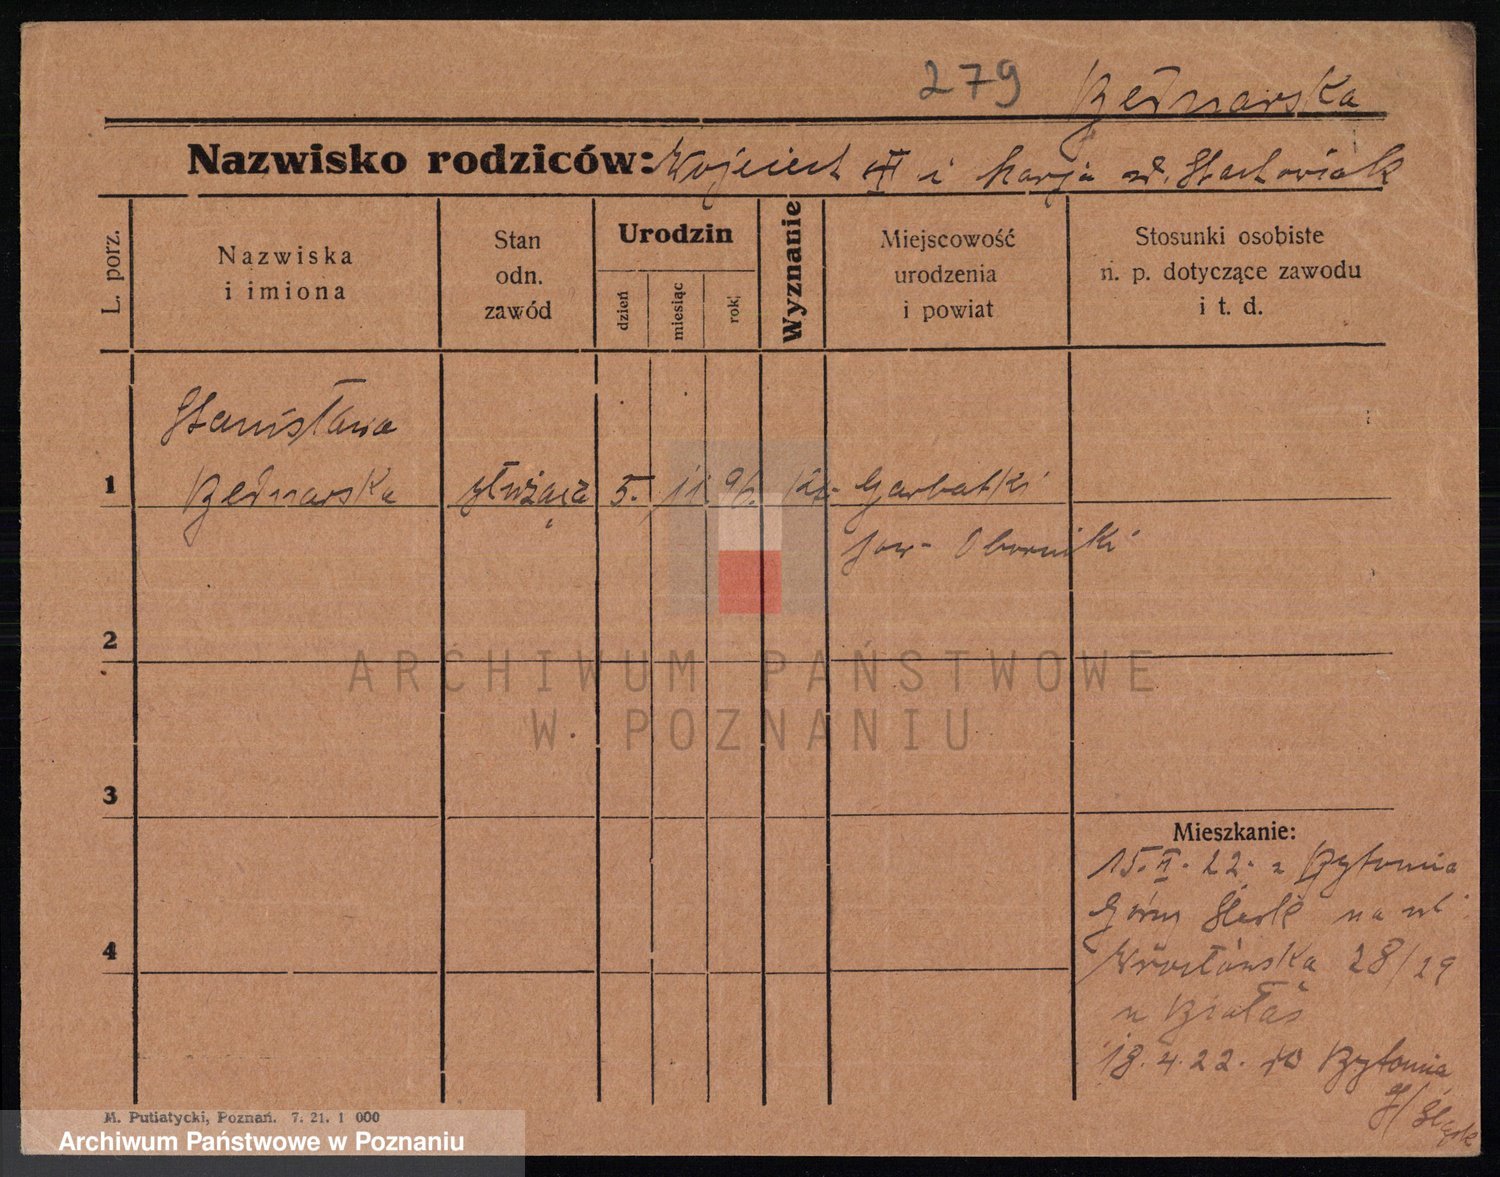 279 Bednarska
Nazwisko rodziców: Wojciech i Marja Stachowiak
L. porz.
Nazwiska
i imiona
Stan
odn.
zawód
Urodzin
dzień
miesiąc
rok
Wyznanie
Miejscowość
urodzenia
i powiat
Stosunki osobiste
n. p. dotyczące zawodu
i t. d.
Stanisława
1 Bednarska służąca 5. 11. 96. Kt. Garbatki
pow. Oborniki
2
ARCHIWUM PAŃSTWOWE
W POZNANIU
3
Mieszkanie:
15.II.22. z Bytomia
Górny Śląsk na ul.
4 Wrocławska 28/29
u Białas
18.4.22. do Bytomia
G/Śląsk
M. Putiatycki, Poznań. 7. 21. 1 000
Archiwum Państwowe w Poznaniu